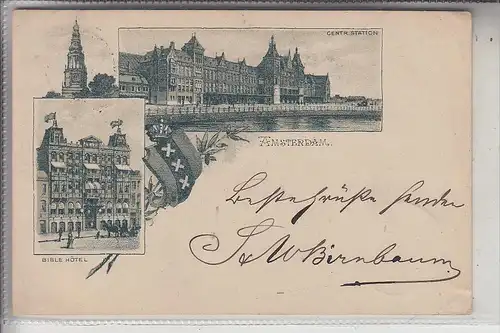 CENTR. STATION
AMSTERDAM.
BIBLE HÔTEL
Beste Grüße sendet
Birnbaum